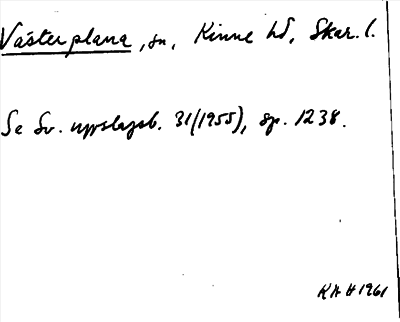 Västerplana, sn, Kinne hd, Skar. l.
Se Sv. uppslagsb. 31(1955), sp. 1238.
KA H 1961